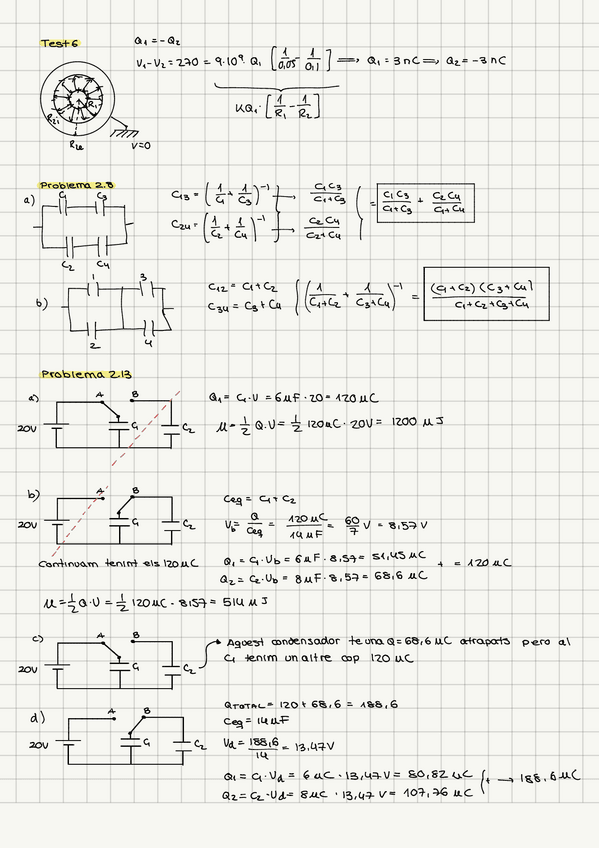 Test 6
Q₁ = -Q₂
V₁-V₂ = 270 = 9·10⁹·Q₁ [1/0,05 - 1/0,1] ⟹ Q₁ = 3 nC ⟹ Q₂ = -3 nC
KQ₁·[1/R₁ - 1/R₂]
R₁
R₂ᵢ
R₂ₑ
V=0
Problema 2.8
a)
C₁ C₃
C₂ C₄
C₁₃ = (1/C₁ + 1/C₃)⁻¹ → C₁C₃/C₁+C₃
C₂₄ = (1/C₂ + 1/C₄)⁻¹ → C₂C₄/C₂+C₄
= C₁C₃/C₁+C₃ + C₂C₄/C₁+C₄
b)
1 3
2 4
C₁₂ = C₁+C₂
C₃₄ = C₃+C₄
(1/C₁+C₂ + 1/C₃+C₄)⁻¹ = (C₁+C₂)(C₃+C₄)/C₁+C₂+C₃+C₄
Problema 2.13
a)
A B
20V C₁ C₂
Q₁ = C₁·V = 6μF·20 = 120 μC
μ = 1/2 Q·V = 1/2 120μC·20V = 1200 μJ
b)
A B
20V C₁ C₂
Ceq = C₁+C₂
V_b = Q/Ceq = 120 μC/14 μF = 60/7 V = 8,57 V
Continuam tenint els 120μC
Q₁ = C₁·U_b = 6μF·8,57 = 51,45 μC
Q₂ = C₂·U_b = 8μF·8,57 = 68,6 μC
+ = 120 μC
μ = 1/2 Q·U = 1/2 120μC·8,57 = 514 μJ
c)
A B
20V C₁ C₂
Aquest condensador te una Q=68,6 μC atrapats pero al
C₁ tenim un altre cop 120 μC
d)
A B
20V C₁ C₂
QTOTAL = 120 + 68,6 = 188,6
Ceq = 14μF
V_d = 188,6/14 = 13,47V
Q₁ = C₁·U_d = 6 μC · 13,47 V = 80,82 μC
Q₂ = C₂·U_d = 8μC · 13,47 V = 107,76 μC
+ → 188,6μC